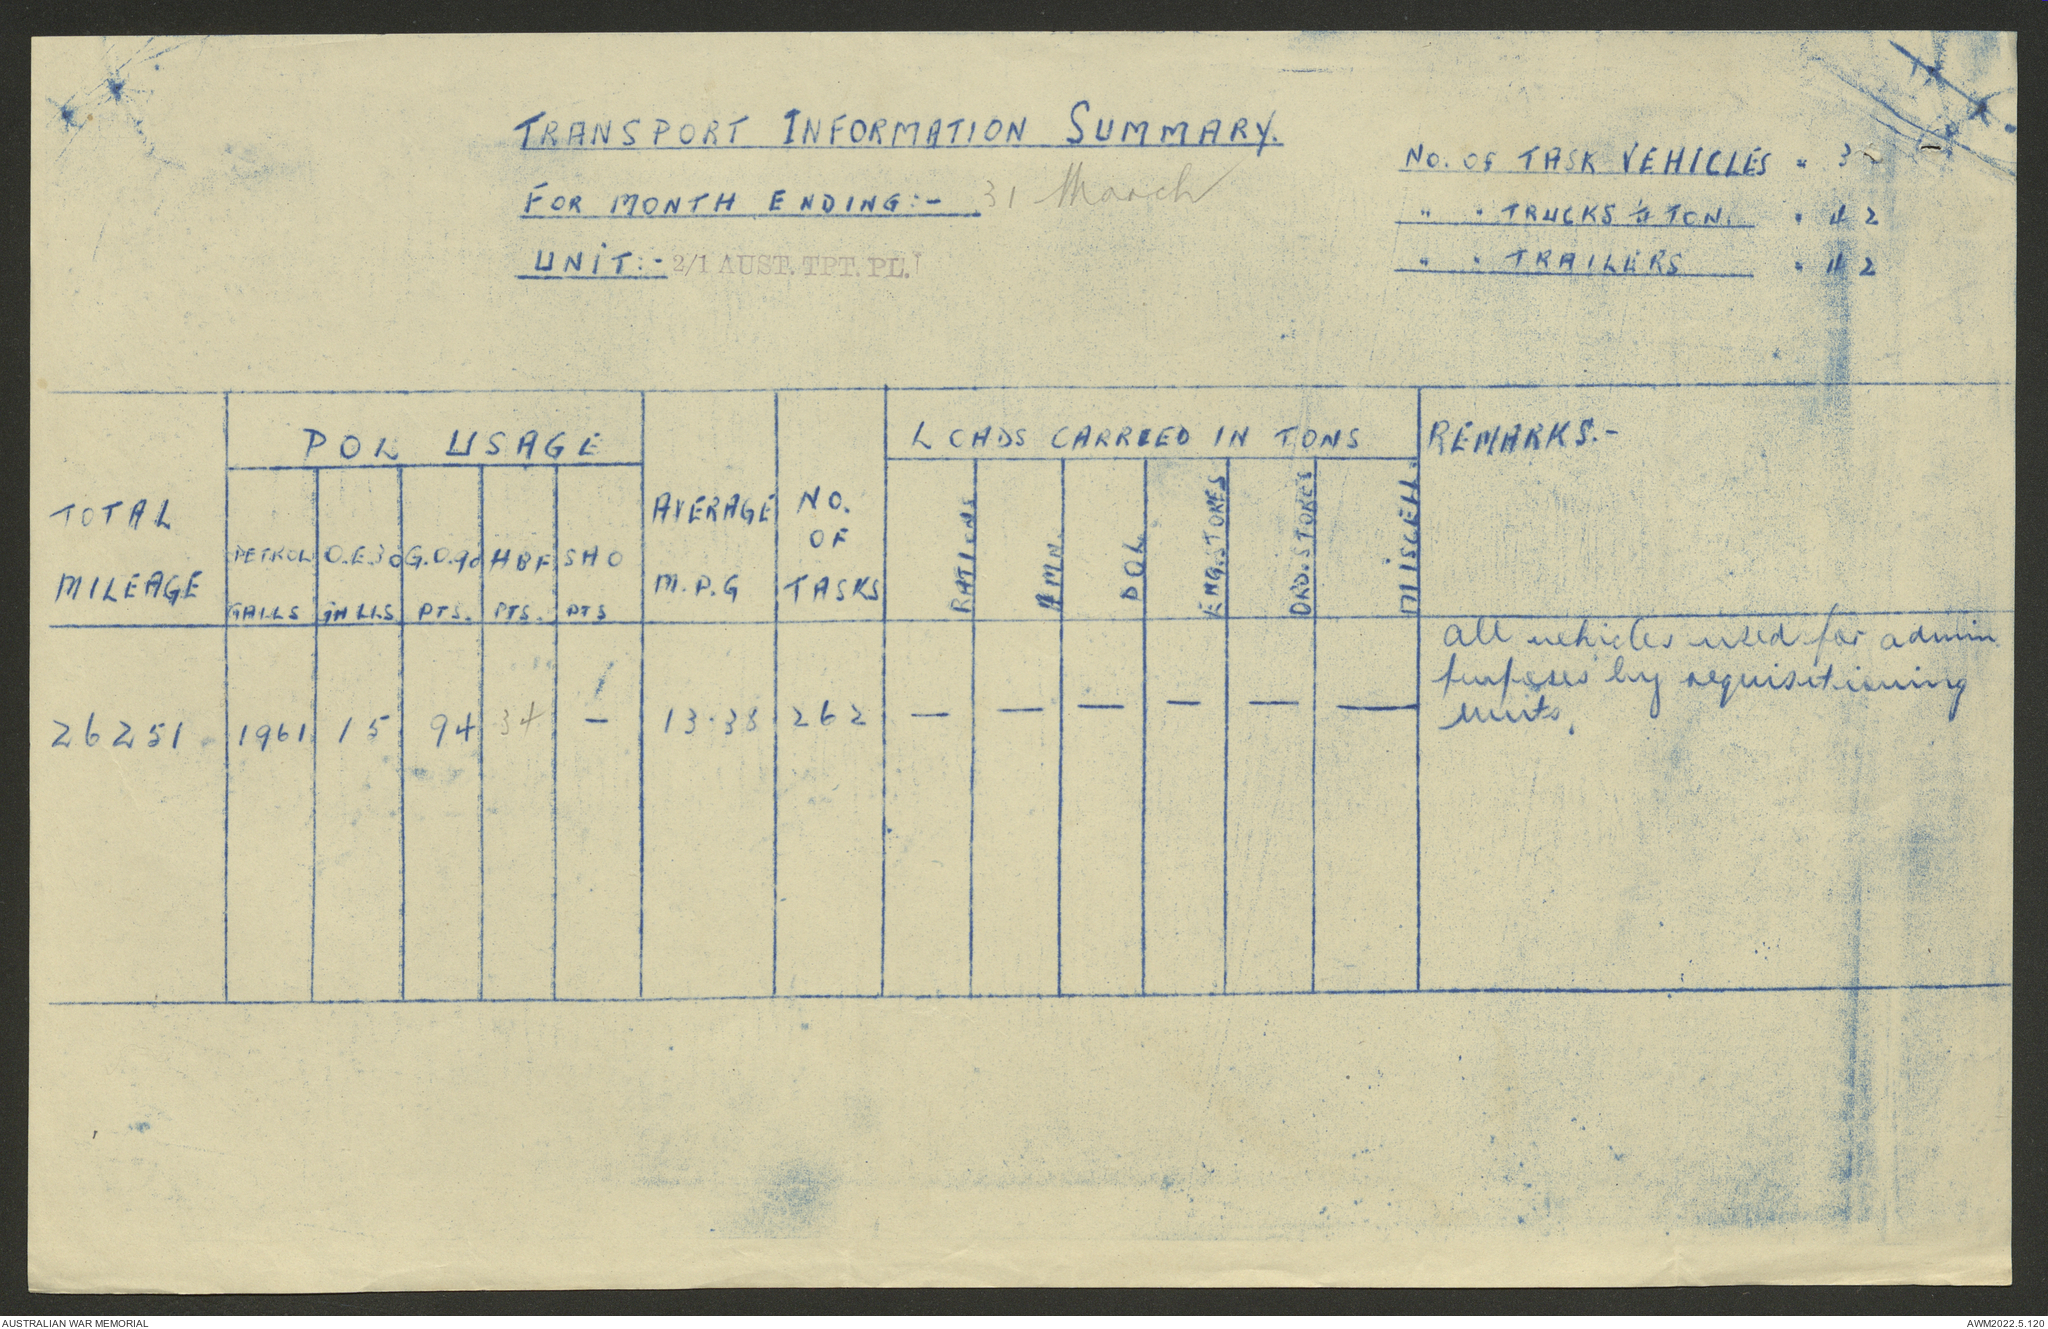 TRANSPORT INFORMATION SUMMARY.
FOR MONTH ENDING:- 31 March
UNIT:- 2/1 AUST. TPT. PL.
NO. OF TASK VEHICLES " 3
" " TRUCKS ¼ TON. " 42
" " TRAILERS " 42
TOTAL MILEAGE
POL USAGE
PETROL GALLS
O.E.30 GALLS
G.O.90 PTS.
HBF PTS.
SHO PTS
AVERAGE M.P.G
NO. OF TASKS
LOADS CARRIED IN TONS
RATIONS
AMN.
POL
ENG. STORES
ORD. STORES
MISCELL.
REMARKS.-
26251 1961 15 94 34 - 13.38 262 — — — — — —
All vehicles used for admin
purposes by requisitioning
units.
AUSTRALIAN WAR MEMORIAL
AWM2022.5.120